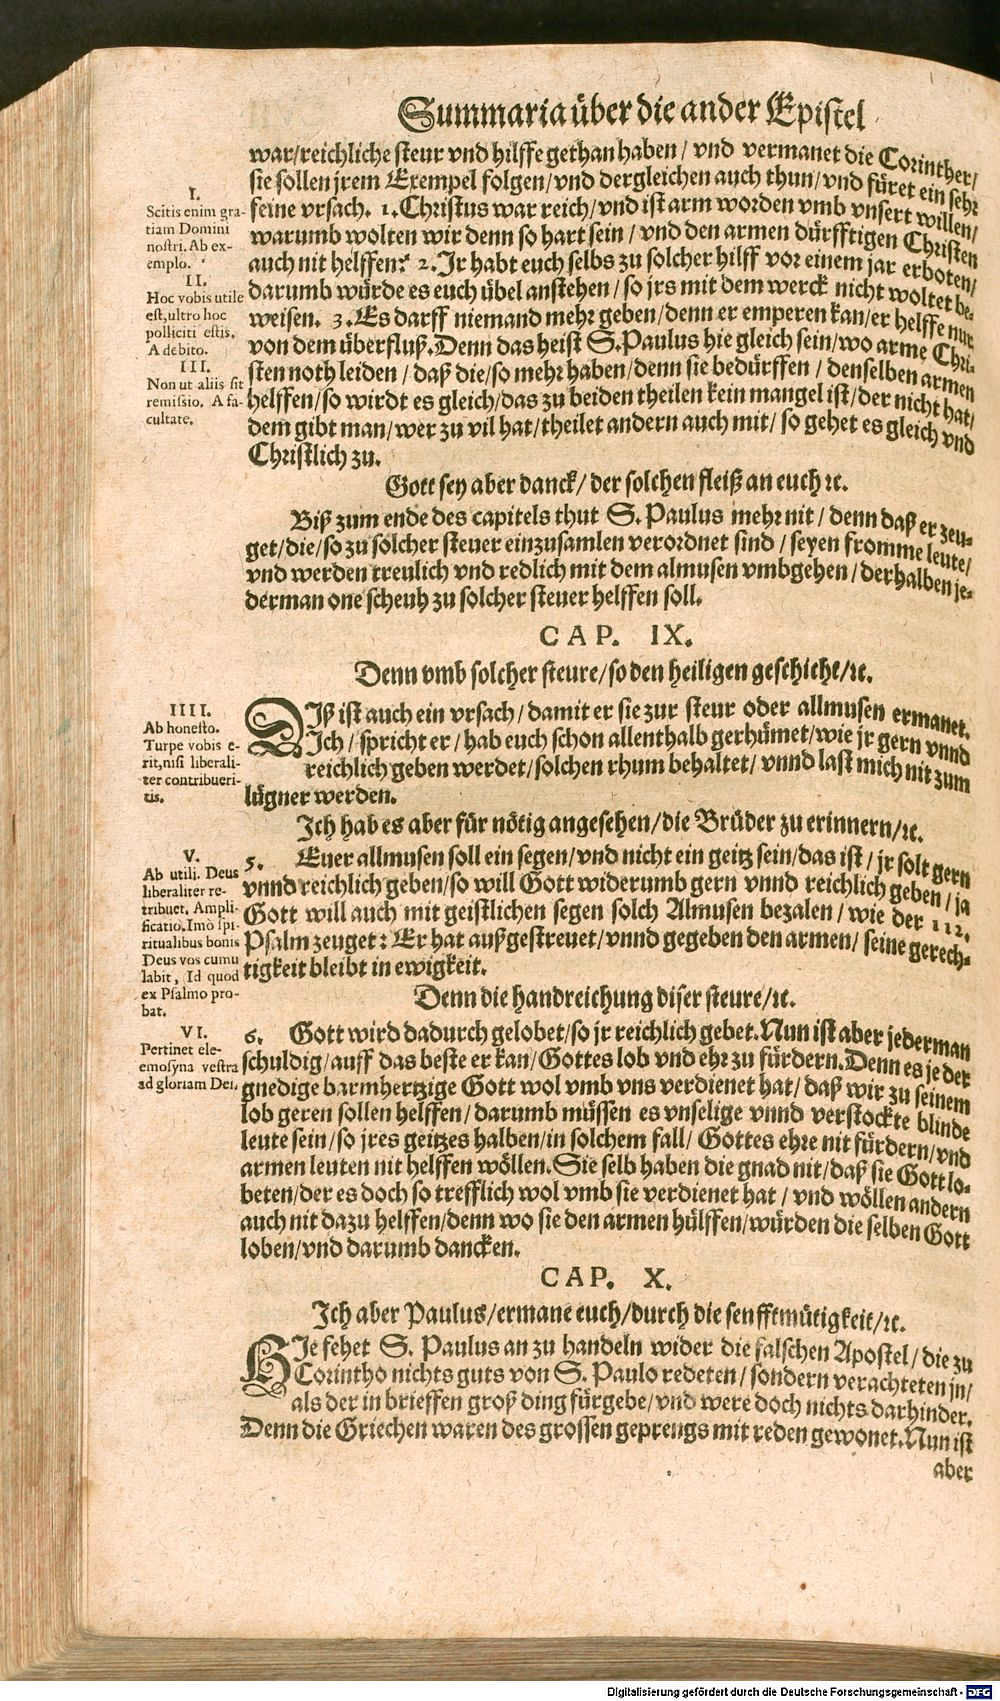 Summaria über die ander Epistel
war/reichliche steur vnd hilffe gethan haben / vnd vermanet die Corinther/
sie sollen jrem Exempel folgen/vnd dergleichen auch thun/vnd füret ein sehr
feine vrsach. 1. Christus war reich/vnd ist arm worden vmb vnsert willen/
warumb wolten wir denn so hart sein / vnd den armen dürfftigen Christen
auch nit helffen? 2. Jr habt euch selbs zu solcher hilff vor einem jar erboten/
darumb würde es euch übel anstehen / so jrs mit dem werck nicht woltet be-
weisen. 3. Es darff niemand mehr geben/denn er emperen kan/er helffe nur
von dem überfluß. Denn das heist S. Paulus hie gleich sein/wo arme Chri-
sten noth leiden / daß die/so mehr haben/denn sie bedürffen / denselben armen
helffen/so wirdt es gleich/das zu beiden theilen kein mangel ist/der nicht hat/
dem gibt man/wer zu vil hat/theilet andern auch mit/ so gehet es gleich vnd
Christlich zu.
I.
Scitis enim gra-
tiam Domini
nostri. Ab ex-
emplo.
II.
Hoc vobis utile
est, ultro hoc
polliciti estis.
A debito.
III.
Non ut aliis sit
remissio. A fa-
cultate.
Gott sey aber danck/ der solchen fleiß an euch ꝛc.
Biß zum ende des capitels thut S. Paulus mehr nit / denn daß er zeu-
get/die/so zu solcher steuer einzusamlen verordnet sind / seyen fromme leute/
vnd werden treulich vnd redlich mit dem almusen vmbgehen / derhalben je-
derman one scheuh zu solcher steuer helffen soll.
CAP. IX.
Denn vmb solcher steure/so den heiligen geschicht/ꝛc.
DIß ist auch ein vrsach/damit er sie zur steur oder allmusen ermanet.
Ich / spricht er / hab euch schon allenthalb gerhümet/wie jr gern vnnd
reichlich geben werdet/solchen rhum behaltet/ vnnd last mich nit zum
lügner werden.
IIII.
Ab honesto.
Turpe vobis e-
rit, nisi liberali-
ter contribueri-
tis.
Ich hab es aber für nötig angesehen/die Brüder zu erinnern/ꝛc.
5. Euer allmusen soll ein segen/vnd nicht ein geitz sein/das ist / jr solt gern
vnnd reichlich geben/so will Gott widerumb gern vnnd reichlich geben / ja
Gott will auch mit geistlichen segen solch Almusen bezalen / wie der 112.
Psalm zeuget: Er hat außgestreuet/vnnd gegeben den armen / seine gerech-
tigkeit bleibt in ewigkeit.
V.
Ab utili. Deus
liberaliter re-
tribuet. Ampli-
ficatio. Imo spi-
ritualibus bonis
Deus vos cumu
labit, Id quod
ex Psalmo pro-
bat.
Denn die handreichung diser steure/ꝛc.
6. Gott wird dadurch gelobet/so jr reichlich gebet. Nun ist aber jederman
schuldig/auff das beste er kan/Gottes lob vnd ehr zu fürdern. Denn es je der
gnedige barmhertzige Gott wol vmb vns verdienet hat/ daß wir zu seinem
lob geren sollen helffen/ darumb müssen es vnselige vnnd verstockte blinde
leute sein/so jres geitzes halben/in solchem fall/ Gottes ehre nit fürdern/vnd
armen leuten nit helffen wöllen. Sie selb haben die gnad nit/daß sie Gott lo-
beten/der es doch so trefflich wol vmb sie verdienet hat / vnd wöllen andern
auch nit dazu helffen/denn wo sie den armen hülffen/würden die selben Gott
loben/vnd darumb dancken.
VI.
Pertinet ele-
emosyna vestra
ad gloriam Dei.
CAP. X.
Ich aber Paulus/ermane euch/durch die senfftmütigkeit/ꝛc.
HIe fehet S. Paulus an zu handeln wider die falschen Apostel/ die zu
Corintho nichts guts von S. Paulo redeten / sondern verachteten jn/
als der in brieffen groß ding fürgebe/vnd were doch nichts darhinder.
Denn die Griechen waren des grossen geprengs mit reden gewonet. Nun ist
aber
Digitalisierung gefördert durch die Deutsche Forschungsgemeinschaft - DFG